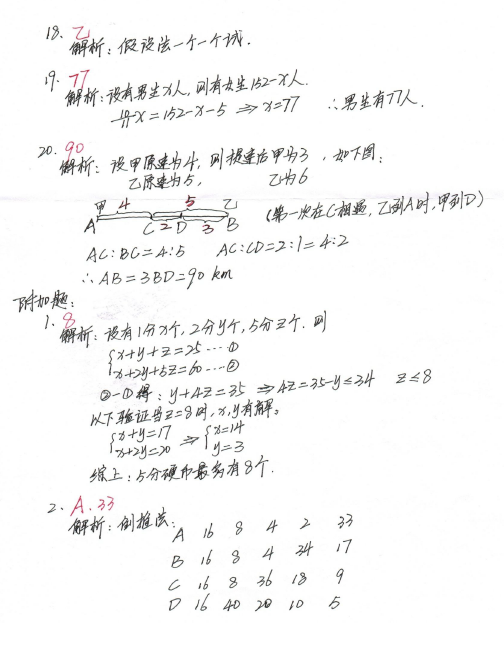 18. 乙
解析：假设法一个一个试.
19. 77
解析：设有男生x人，则有女生152-x人.
10/11 x=152-x-5 ⇒ x=77 ∴男生有77人.
20. 90
解析：设甲原速为4，则提速后甲为3，如下图：
乙原速为5， 乙为6
甲 4 5 乙
A C 2 D 3 B (第一次在C相遇，乙到A时，甲到D)
AC:BC=4:5 AC:CD=2:1=4:2
∴AB=3BD=90 km
附加题：
1. 8
解析：设有1分x个，2分y个，5分z个.则
{x+y+z=25 ……①
x+2y+5z=60 ……②
②-①得：y+4z=35 ⇒4z=35-y≤34 z≤8
以下验证当z=8时，x,y有解。
{x+y=17 ⇒ {x=14
x+2y=20 y=3
综上：5分硬币最多有8个.
2. A.33
解析：倒推法：
A 16 8 4 2 33
B 16 8 4 34 17
C 16 8 36 18 9
D 16 40 20 10 5